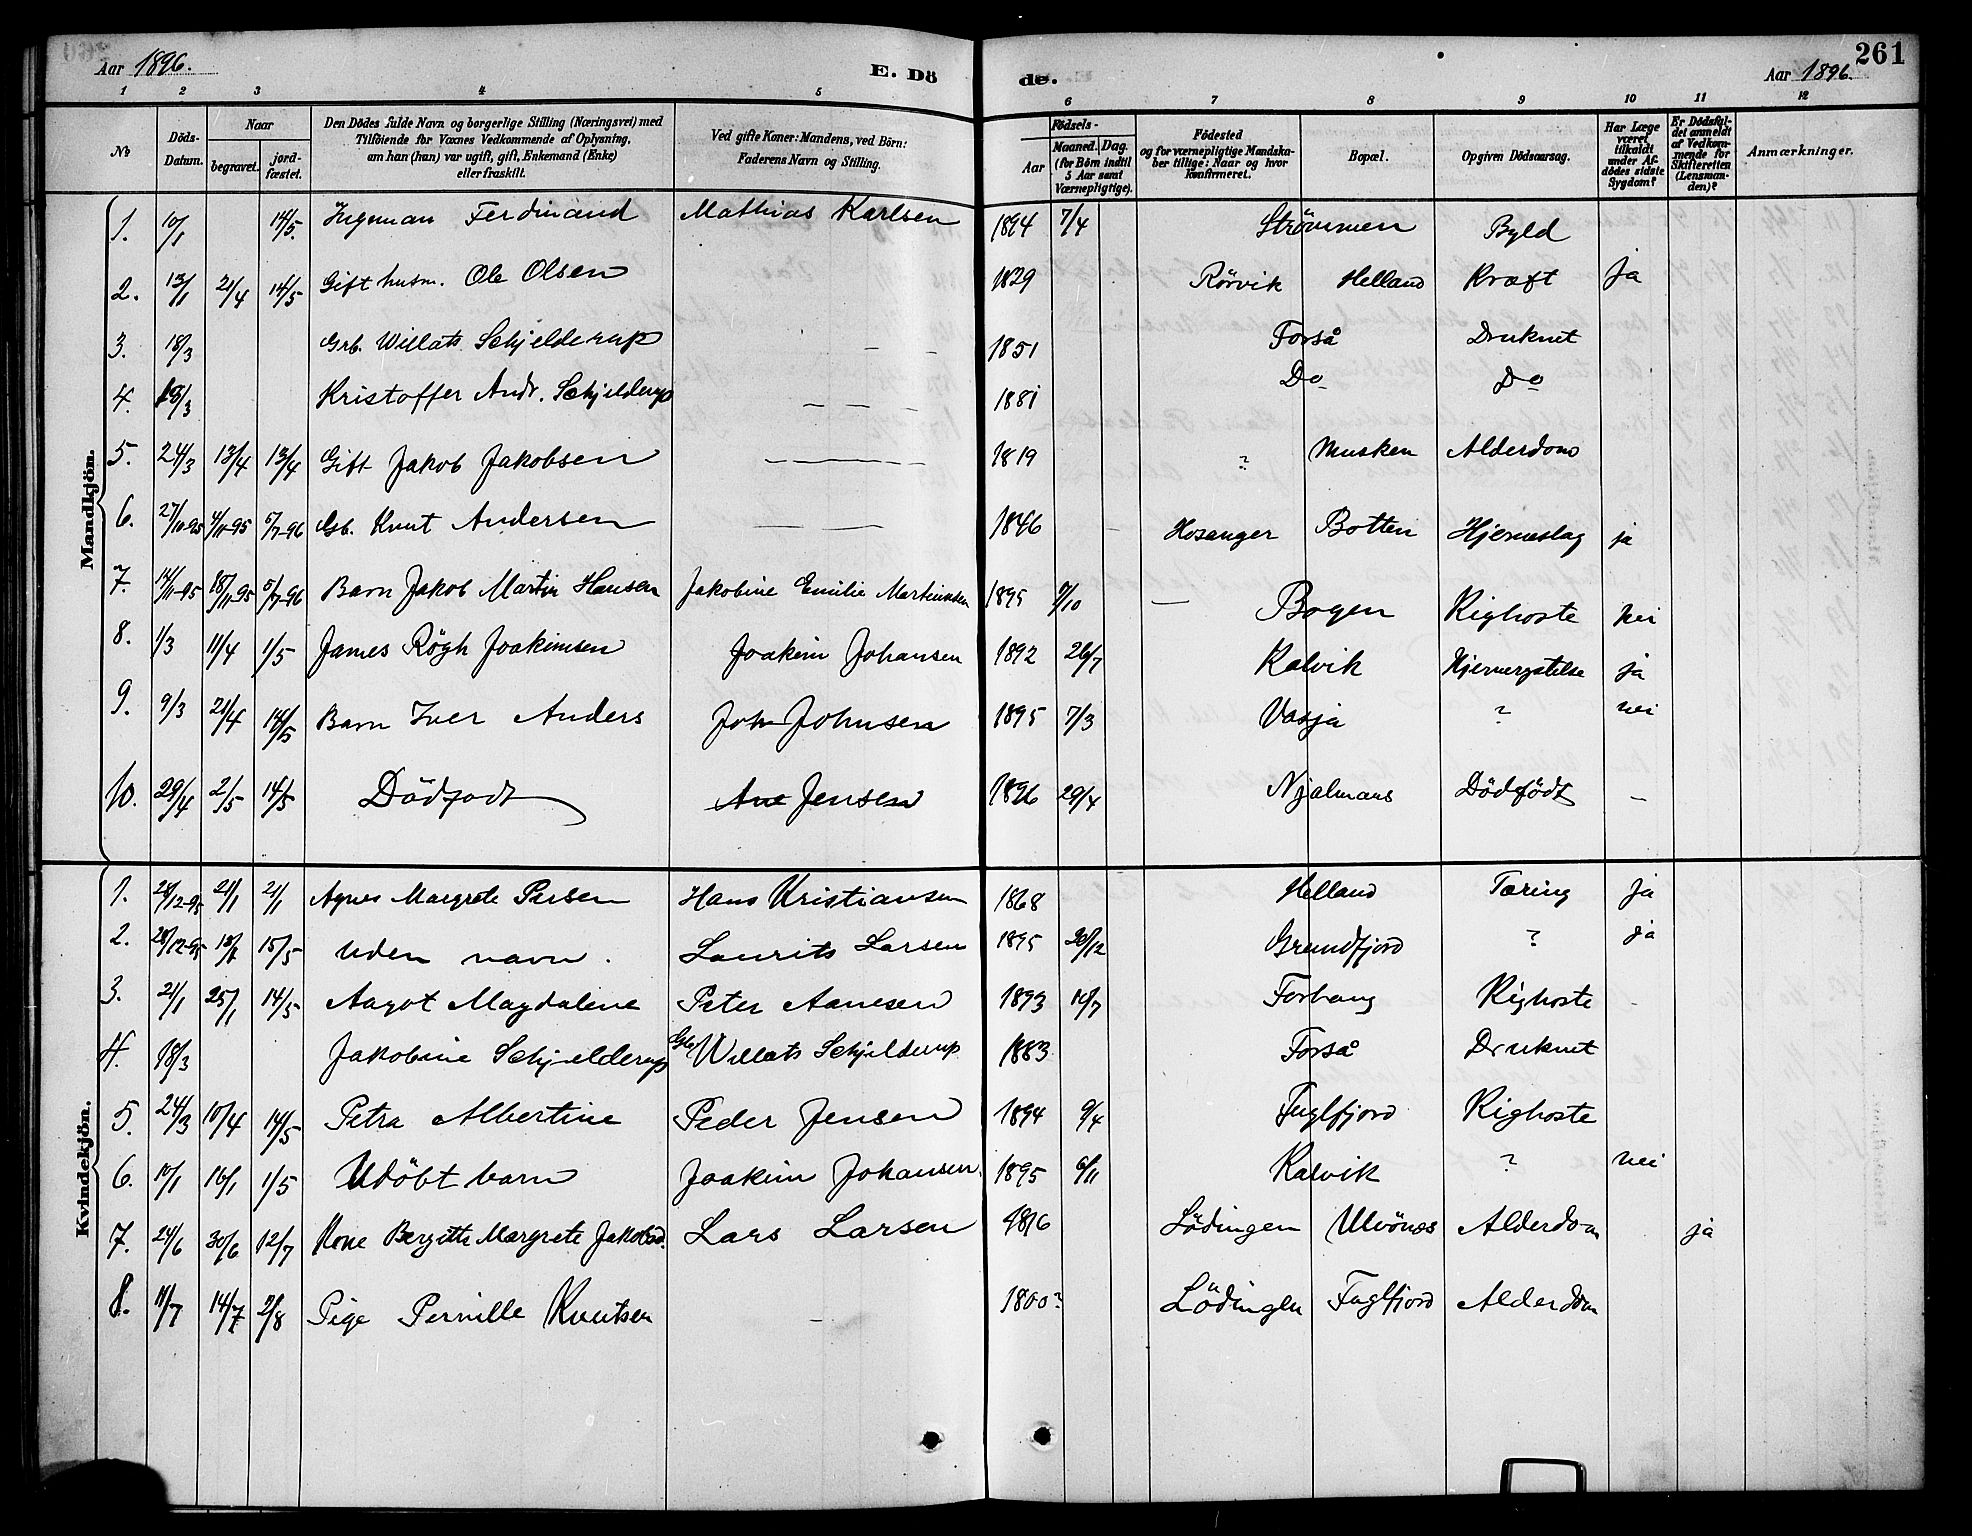 Aar 1896.
E. Dö de.
261
Aar 1896.
1 2 3 4 5 6 7 8 9 10 11 12
№
Döds-Datum.
Naar
begravet.
jord-fæstet.
Den Dödes fulde Navn og borgerlige Stilling (Næringsvei) med
Tilföiende for Voxnes Vedkommende af Oplysning,
om han (hun) var ugift, gift, Enkemand (Enke)
eller fraskilt.
Ved gifte Koner: Mandens, ved Börn:
Faderens Navn og Stilling.
Födsels-
Aar
Maaned. Dag.
(for Börn indtil
5 Aar samt
Værnepligtige).
Födested
og for værnepligtige Mandska-
ber tillige: Naar og hvor
konfirmeret.
Bopæl.
Opgiven Dödsaarsag.
Har Læge
været
tilkaldt
under Af-
dödes sidste
Sygdom?
Er Dödsfal-
det anmeldt
af Vedkom-
mende for
Skifteretten
(Lensman-
den)?
Anmærkninger.
Mandkjön.
1. 10/1 14/5. Ingeman Ferdinand Mathias Karlsen 1894 7/4 Strömmen Byld
2. 13/1 21/4 14/5 Gift husm. Ole Olsen 1829 Rörvik Helland Kræft Ja
3. 18/3 Grb. Willats Schjelderup — — 1851 Forså Druknet
4. 18/3 Kristoffer Andr. Schjelderup — — — 1881 Do Do
5. 24/3 13/4 13/4 Gift Jakob Jakobsen — — — 1819 ? Musken Alderdom
6. 27/10-95 4/11-95 5/7-96 Gb. Knut Andersen — — 1846 Hosanger Botten Hjerneslag ja
7. 14/11-95 18/11-95 5/7-96 Barn Jakob Martin Hansen Jakobine Emilie Martinsen 1895 7/10 — Bogen Kighoste Nei
8. 1/3 11/4 1/5 James Rögh Joakimsen Joakim Johansen 1892 26/7 Kalvik Hjernerystelse ja
9. 9/3 21/4 14/5 Barn Iver Anders Joh Johnsen 1895 7/3 Vasja ? nei
10. 29/4 2/5 14/5 Dödfödt Ane Jensen 1896 29/4 Njalmars Dödfödt —
Kvindekjön.
1. 28/12-95 21/1 2/1 Agnes Margrete Persen Hans Kristiansen 1868 Helland Tæring Ja
2. 28/12-95 15/5 Uden navn. Laurits Larsen 1895 20/12 Grundfjord ? ja
3. 21/1 25/1 14/5 Aagot Magdalene Peter Aanesen 1893 10/7 Kighoste
4. 18/3 Jakobine Schjelderup Gb. Willats Schjelderup 1883 Forså Druknet
5. 24/3 10/4 14/5 Petra Albertine Peder Jensen 1894 9/4 Fuglfjord Kighoste
6. 10/1 16/1 1/5 Udöbt barn Joakim Johansen. 1895 6/11 Kalvik ? Nei
7. 24/6 30/6 12/7 Kone Bergitte Margrete Jakobsd. Lars Larsen 1816 Lödingen Ulvönes Alderdom ja
8. 11/7 14/7 2/8 Pige Pernille Knutsen — 1800? Lödingen Fuglfjord Alderdom